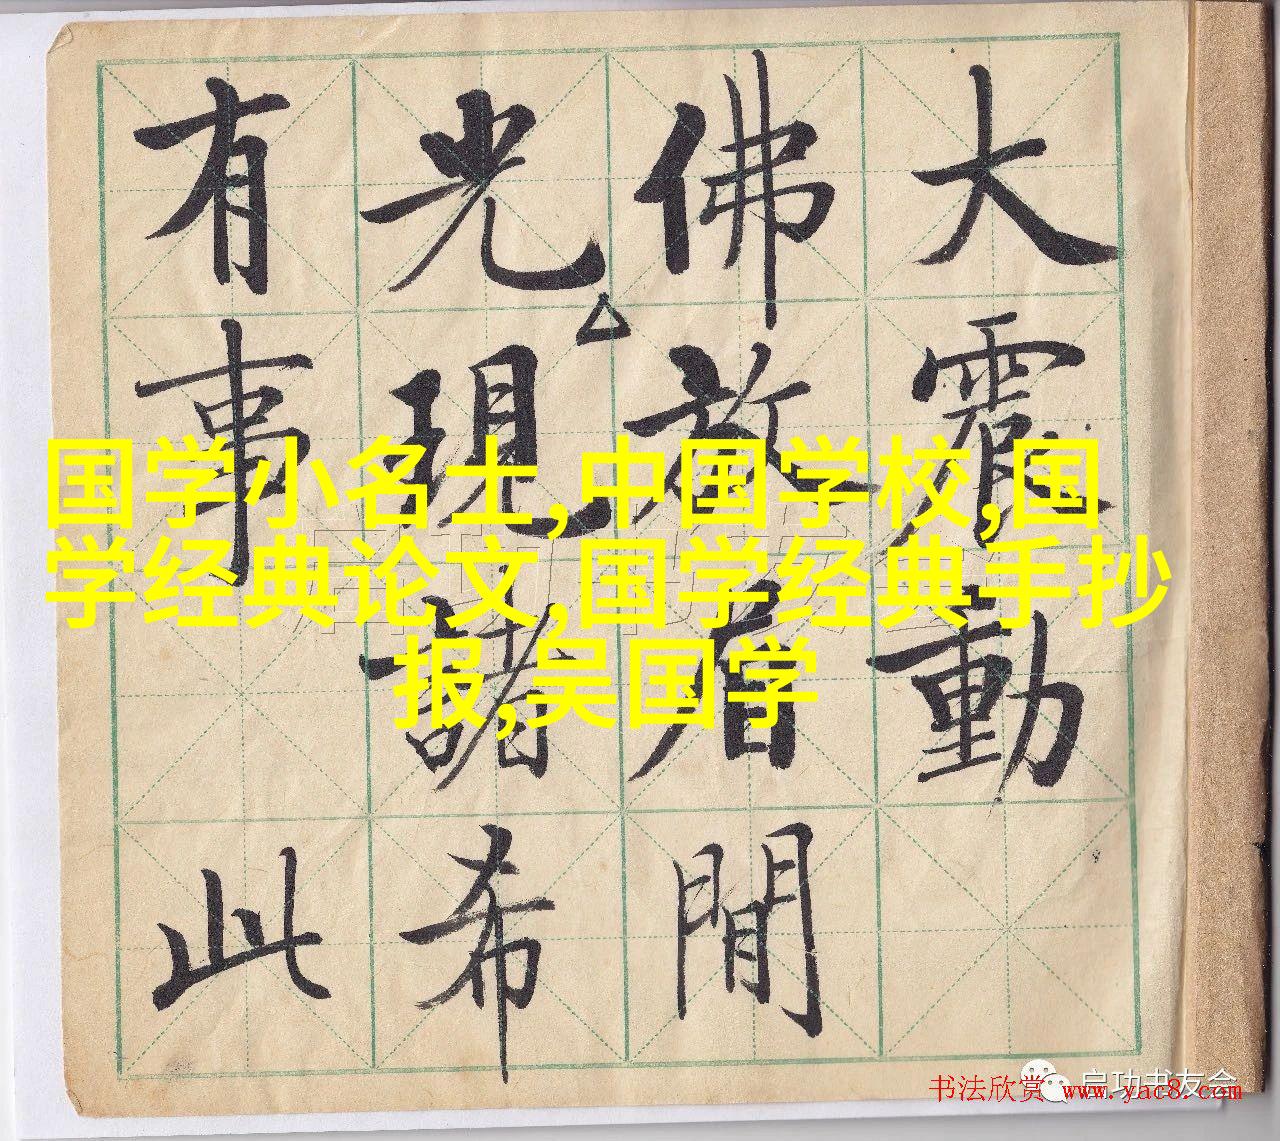 大震動
佛放眉閒
光現諸希
有事此
国学小名士,中国学校,国
学经典论文,国学经典手抄
报,吴国学
启功书友会
书法欣赏 www.yac8.com